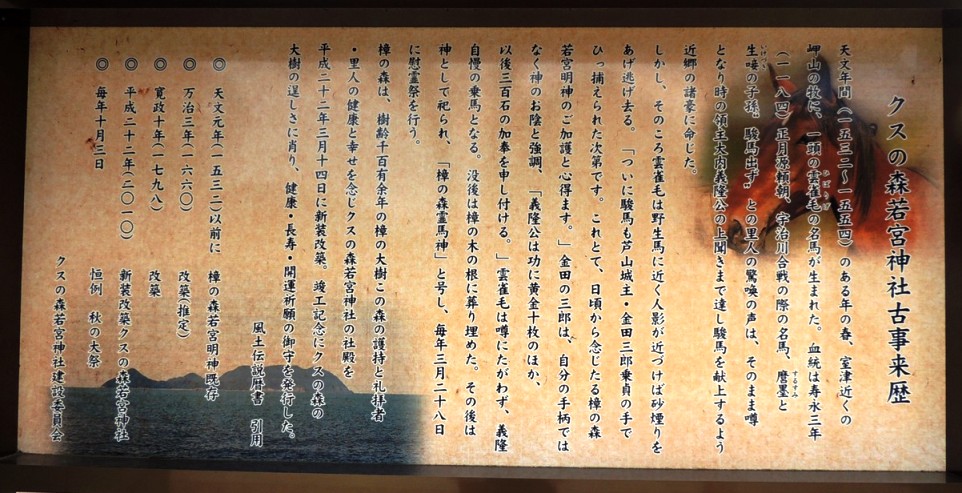 クスの森若宮神社古事来歴
天文年間(一五三二～一五五四)のある年の春、室津近くの
岬山の牧に、一頭の雲雀毛の名馬が生まれた。血統は寿永三年
ひばりげ
(一一八四)正月源頼朝、宇治川合戦の際の名馬、磨墨と
するすみ
生唼の子孫。駿馬出ず〟との里人の驚喚の声は、そのまま噂
いけづき
となり時の領主大内義隆公の上聞きまで達し駿馬を献上するよう
近郷の諸豪に命じた。
しかし、そのころ雲雀毛は野生馬に近く人影が近づけば砂煙りを
あげ逃げ去る。「ついに駿馬も芦山城主・金田三郎乗貞の手で
ひっ捕えられた次第です。これとて、日頃から念じたる樟の森
若宮明神のご加護と心得ます。」金田の三郎は、自分の手柄では
なく神のお陰と強調、「義隆公は功に黄金十枚のほか、
以後三百石の加奉を申し付ける。」雲雀毛は噂にたがわず、義隆
自慢の乗馬となる。没後は樟の木の根に葬り埋めた。その後は
神として祀られ、「樟の森霊馬神」と号し、毎年三月二十八日
に慰霊祭を行う。
樟の森は、樹齢千百有余年の樟の大樹この森の護持と礼拝者
・里人の健康と幸せを念じクスの森若宮神社の社殿を
平成二十二年三月十四日に新装改築。竣工記念にクスの森の
大樹の逞しさに肖り、健康・長寿・開運祈願の御守を発行した。
風土伝説暦書 引用
◎ 天文元年(一五三二)以前に 樟の森若宮明神既存
◎ 万治三年(一六六〇) 改築(推定)
◎ 寛政十年(一七九八) 改築
◎ 平成二十二年(二〇一〇) 新装改築クスの森若宮神社
◎ 毎年十月三日 恒例 秋の大祭
クスの森若宮神社建設委員会